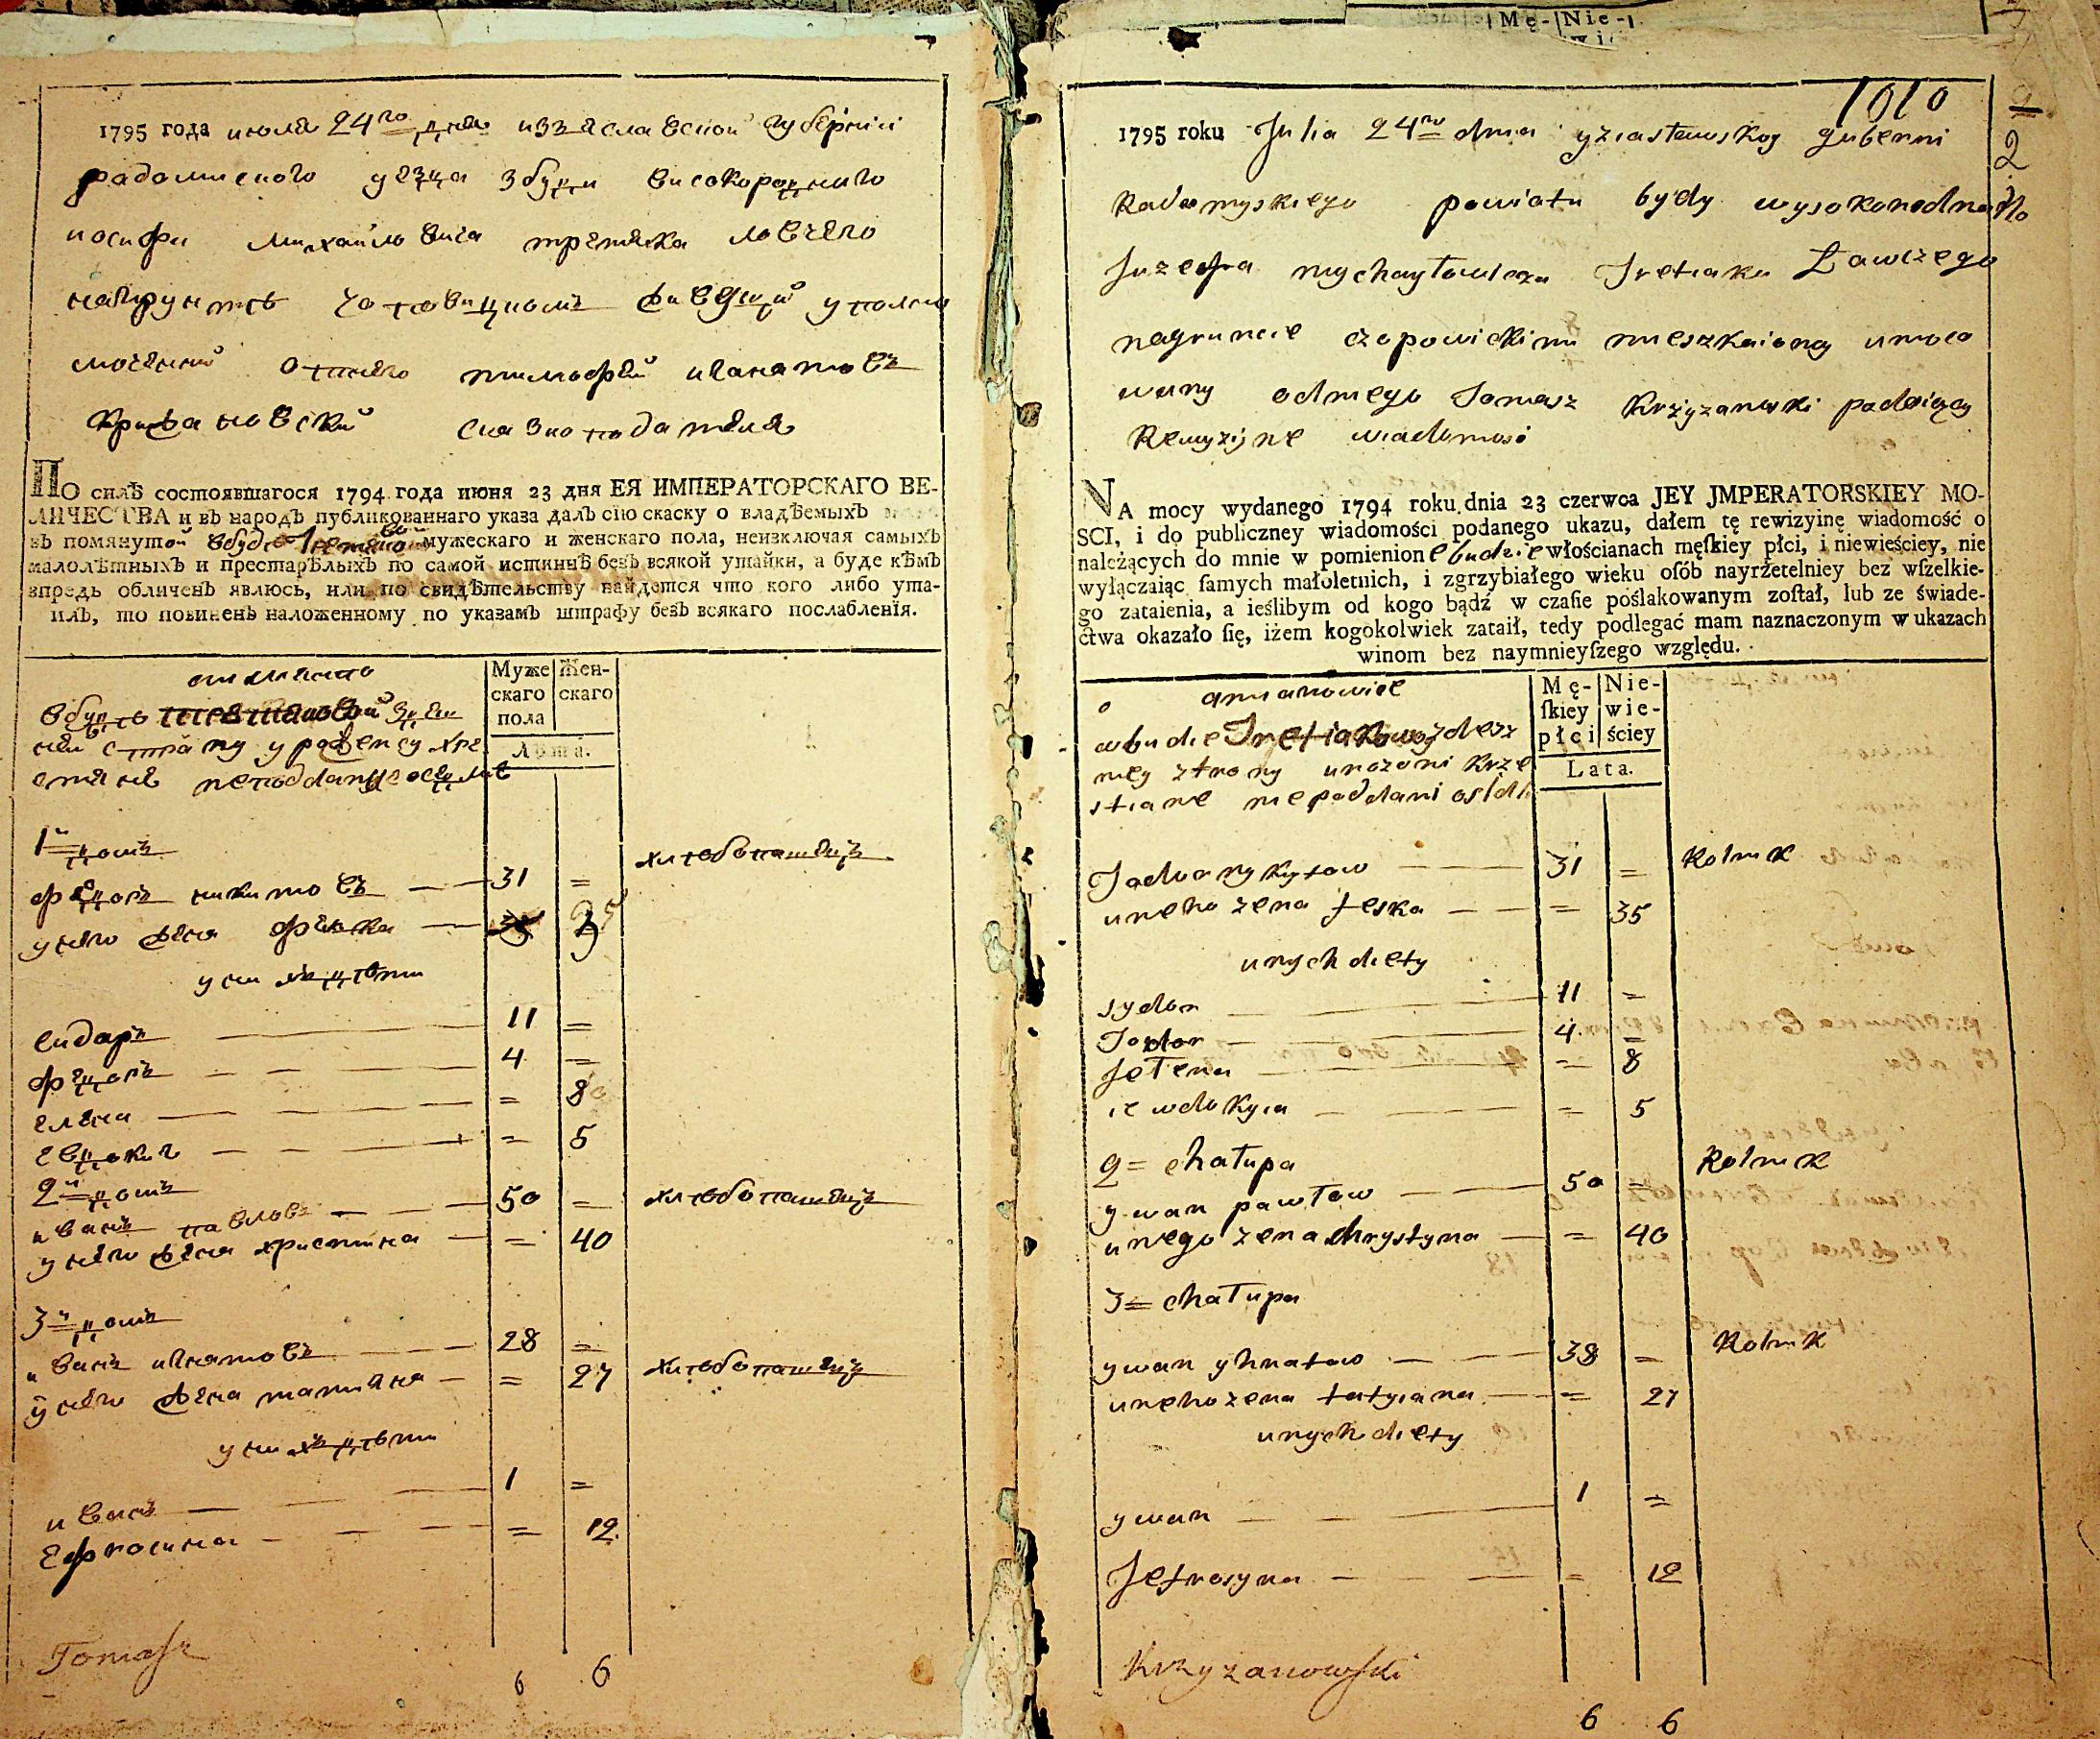 1795 года июля 24го дня изяславской губернии
радомиского уезда з буди високородного
иосифа михайловича третяка ловчего
на грунтѣ чоповицкомъ живущий уполно
моченний от него тимофей игнатовъ
крижановский сказкоподатель
ПО силѣ состоявшагося 1794 года июня 23 дня ЕЯ ИМПЕРАТОРСКАГО ВЕ-
ЛИЧЕСТВА и въ народъ публикованнаго указа далъ сію скаску о владѣемыхъ
въ помянутой мужескаго и женскаго пола, неизключая самыхъ
малолѣтныхъ и престарѣлыхъ по самой истиннѣ безъ всякой утайки, а буде кѣмъ
впредь обличенъ явлюсь, или по свидѣтельству найдется что кого либо ута-
илъ, то повиненъ наложенному по указамъ штрафу безъ всякаго послабленія.
а имянно
Муже Жен-
скаго скаго
пола
Лѣта.
1й домъ
федоръ никитовъ 31 = хлѣбопашецъ
у него жена феска 35
у них дѣти
сидоръ 11 =
федоръ 4 =
елена = 8
евдокия = 5
2й домъ
иванъ павловъ 50 = хлѣбопашецъ
у него жена христина = 40
3й домъ
иванъ игнатовъ 28 =
у него жена татияна = 27 хлѣбопашецъ
у них дѣти
иванъ 1 =
ефросина = 12
Tomasz
6 6
Mę- Nie-
1010
2
1795 roku Julia 24go dnia yziasławskoy gubernii
Radomyskiego powiatu z budy wysokorodnego
Juzefa mychayłowicza Tretiaka Łowczego
na gruncie czopowickim mieszkaiący umoco
wany od niego Tomasz Krzyżanowski podaiący
Rewyzijne wiadomosć
NA mocy wydanego 1794 roku dnia 23 czerwca JEY JMPERATORSKIEY MO-
SCI, i do publiczney wiadomości podanego ukazu, dałem tę rewizyinę wiadomość o
należących do mnie w pomienione budzie włościanach męſkiey płci, i niewieściey, nie
wyłączaiąc ſamych małoletnich, i zgrzybiałego wieku oſób nayrzetelniey bez wſzelkie-
go zataienia, a ieślibym od kogo bądź w czaſie poślakowanym zoſtał, lub ze świade-
ctwa okazało ſię, iżem kogokolwiek zataił, tedy podlegać mam naznaczonym w ukazach
winom bez naymnieyſzego względu.
a mianowicie
w budie Tretiakowoy zdesz
niey strony urozoni krze
stiane niepoddani
Mę- Nie-
ſkiey wie-
płci ściey
Lata.
Todor nykytow 31 = Rolnik
u neho zena feska = 35
u nych diety
sydor 11 =
Todor 4 =
Jełena = 8
iewdokyia = 5
2= chałupa
ywan pawłow 50 = Rolnik
u niego zena chrystyna = 40
3= chałupa
ywan yhnatow 38 = Rolnik
u neho zena tatyiana = 27
u nych diety
ywan 1 =
Jefrosyna = 12
Krzyżanowski
6 6